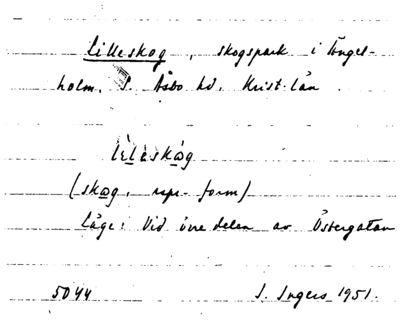 Lilleskog, skogspark i Ängel-
holm. S. Åsbo hd. Krist. län.
lìlèskåg
(skog, rspr-form)
Läge: Vid övre delen av Östergatan
5044 I. Ingers 1951.